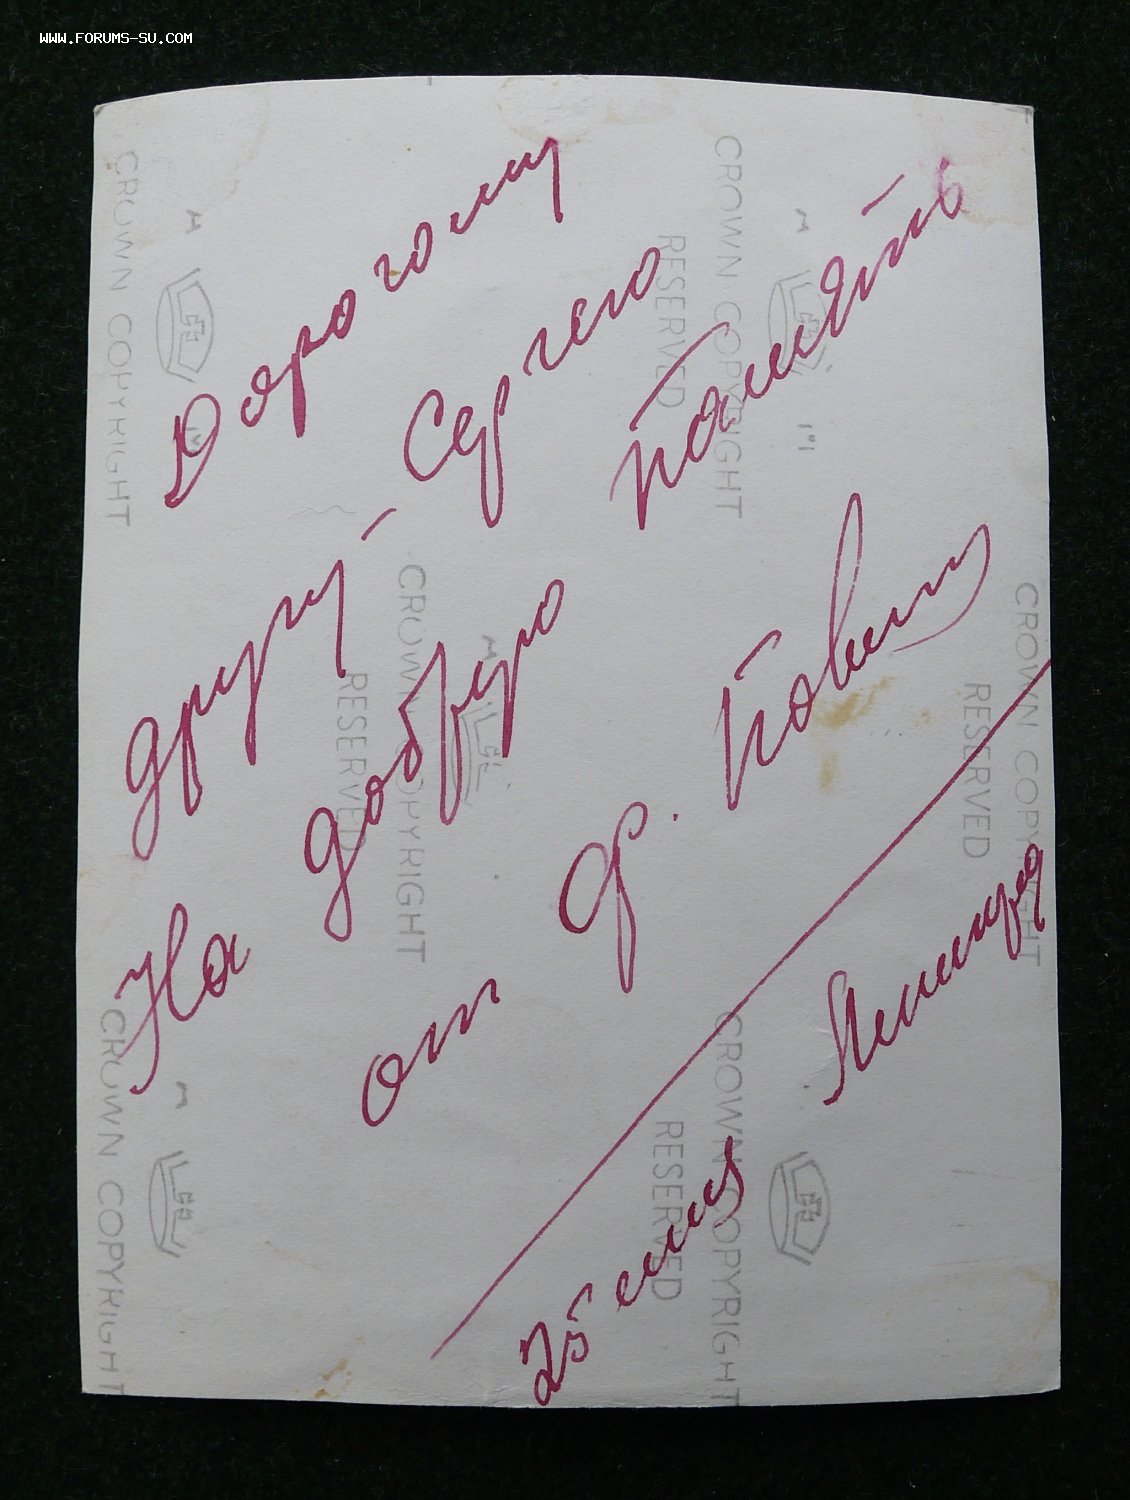 WWW.FORUMS-SU.COM
Дорогому
другу Сергею
На добрую память
от ф.
25 июня Ленинград
CROWN COPYRIGHT
RESERVED
CROWN COPYRIGHT
RESERVED
CROWN COPYRIGHT
RESERVED
CROWN COPYRIGHT
CROWN COPYRIGHT
RESERVED
CROWN COPYRIGHT